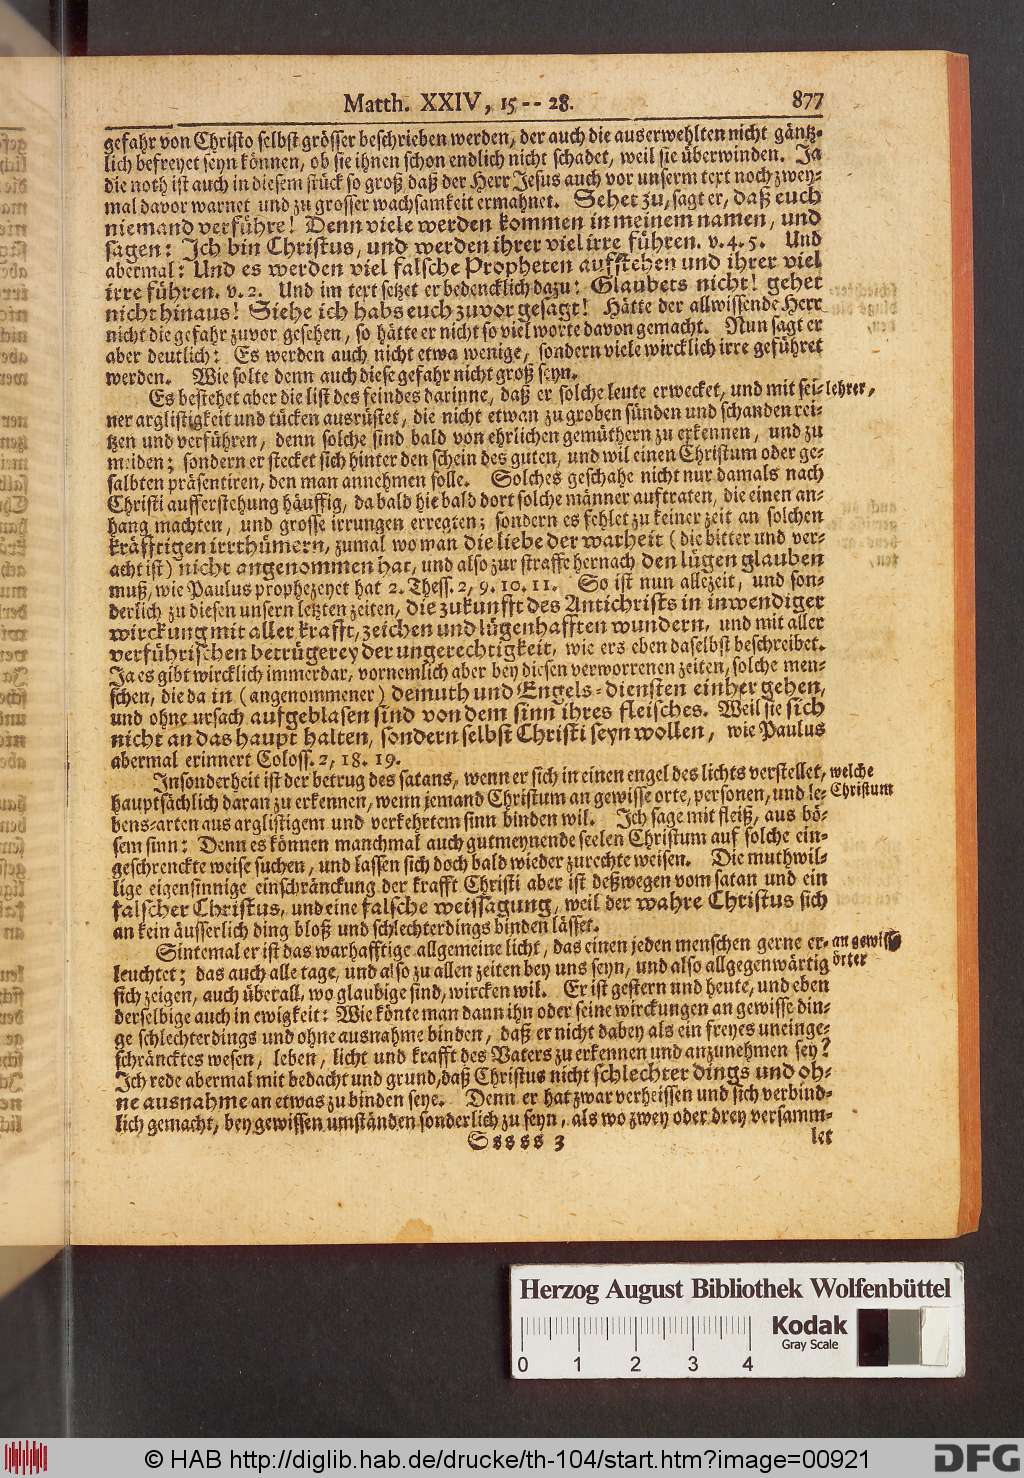 Matth. XXIV, 15 -- 28. 877
gefahr von Christo selbst grösser beschrieben werden, der auch die auserwehlten nicht gäntz-
lich befreyet seyn können, ob sie ihnen schon endlich nicht schadet, weil sie überwinden. Ja
die noth ist auch in diesem stück so groß, daß der Herr Jesus auch vor unserm text noch zwey-
mal davor warnet und zu grosser wachsamkeit ermahnet. Sehet zu, sagt er, daß euch
niemand verführe! Denn viele werden kommen in meinem namen, und
sagen: Ich bin Christus, und werden ihrer viel irre führen. v. 4. 5. Und
abermal: Und es werden viel falsche Propheten aufstehen und ihrer viel
irre führen. v. 2. Und im text setzet er bedencklich dazu: Glaubets nicht! gehet
nicht hinaus! Siehe ich habs euch zuvor gesagt! Hätte der allwissende Herr
nicht die gefahr zuvor gesehen, so hätte er nicht so viel worte davon gemacht. Nun sagt er
aber deutlich: Es werden auch nicht etwa wenige, sondern viele wircklich irre geführet
werden. Wie solte denn auch diese gefahr nicht groß seyn.
Es bestehet aber die list des feindes darinne, daß er solche leute erwecket, und mit sei- lehrer,
ner arglistigkeit und tücken ausrüstet, die nicht etwan zu groben sünden und schanden rei-
tzen und verführen, denn solche sind bald von ehrlichen gemüthern zu erkennen, und zu
meiden; sondern er stecket sich hinter den schein des guten, und wil einen Christum oder ge-
salbten präsentiren, den man annehmen solle. Solches geschahe nicht nur damals nach
Christi aufferstehung häuffig, da bald hie bald dort solche männer auftraten, die einen an-
hang machten, und grosse irrungen erregten; sondern es fehlet zu keiner zeit an solchen
kräfftigen irrthümern, zumal wo man die liebe der warheit (die bitter und ver-
acht ist) nicht angenommen hat, und also zur straffe hernach den lügen glauben
muß, wie Paulus prophezeyet hat 2. Thess. 2, 9. 10. 11. So ist nun allezeit, und son-
derlich zu diesen unsern letzten zeiten, die zukunfft des Antichrists in inwendiger
wirckung mit aller krafft, zeichen und lügenhafften wundern, und mit aller
verführischen betrügerey der ungerechtigkeit, wie ers eben daselbst beschreibet.
Ja es gibt wircklich immerdar, vornemlich aber bey diesen verworrenen zeiten, solche men-
schen, die da in (angenommener) demuth und Engels-diensten einher gehen,
und ohne ursach aufgeblasen sind von dem sinn ihres fleisches. Weil sie sich
nicht an das haupt halten, sondern selbst Christi seyn wollen, wie Paulus
abermal erinnert Coloss. 2, 18. 19.
Insonderheit ist der betrug des satans, wenn er sich in einen engel des lichts verstellet, welche
hauptsächlich daran zu erkennen, wenn jemand Christum an gewisse orte, personen, und le- Christum
bens-arten aus arglistigem und verkehrtem sinn binden wil. Ich sage mit fleiß, aus bö-
sem sinn: Denn es können manchmal auch gutmeynende seelen Christum auf solche ein-
geschrenckte weise suchen, und lassen sich doch bald wieder zurechte weisen. Die muthwil-
lige eigensinnige einschränckung der krafft Christi aber ist deßwegen vom satan und ein
falscher Christus, und eine falsche weissagung, weil der wahre Christus sich
an kein äusserlich ding bloß und schlechterdings binden lässet.
Sintemal er ist das warhafftige allgemeine licht, das einen jeden menschen gerne er- an gewisse
leuchtet; das auch alle tage, und also zu allen zeiten bey uns seyn, und also allgegenwärtig örter
sich zeigen, auch überall, wo glaubige sind, wircken wil. Er ist gestern und heute, und eben
derselbige auch in ewigkeit: Wie könte man dann ihn oder seine wirckungen an gewisse din-
ge schlechterdings und ohne ausnahme binden, daß er nicht dabey als ein freyes uneinge-
schräncktes wesen, leben, licht und krafft des Vaters zu erkennen und anzunehmen sey?
Ich rede abermal mit bedacht und grund, daß Christus nicht schlechter dings und oh-
ne ausnahme an etwas zu binden seye. Denn er hat zwar verheissen und sich verbind-
lich gemacht, bey gewissen umständen sonderlich zu seyn, als wo zwey oder drey versamm-
Sssss 3 let
Herzog August Bibliothek Wolfenbüttel
Kodak
Gray Scale
0 1 2 3 4
© HAB http://diglib.hab.de/drucke/th-104/start.htm?image=00921
DFG